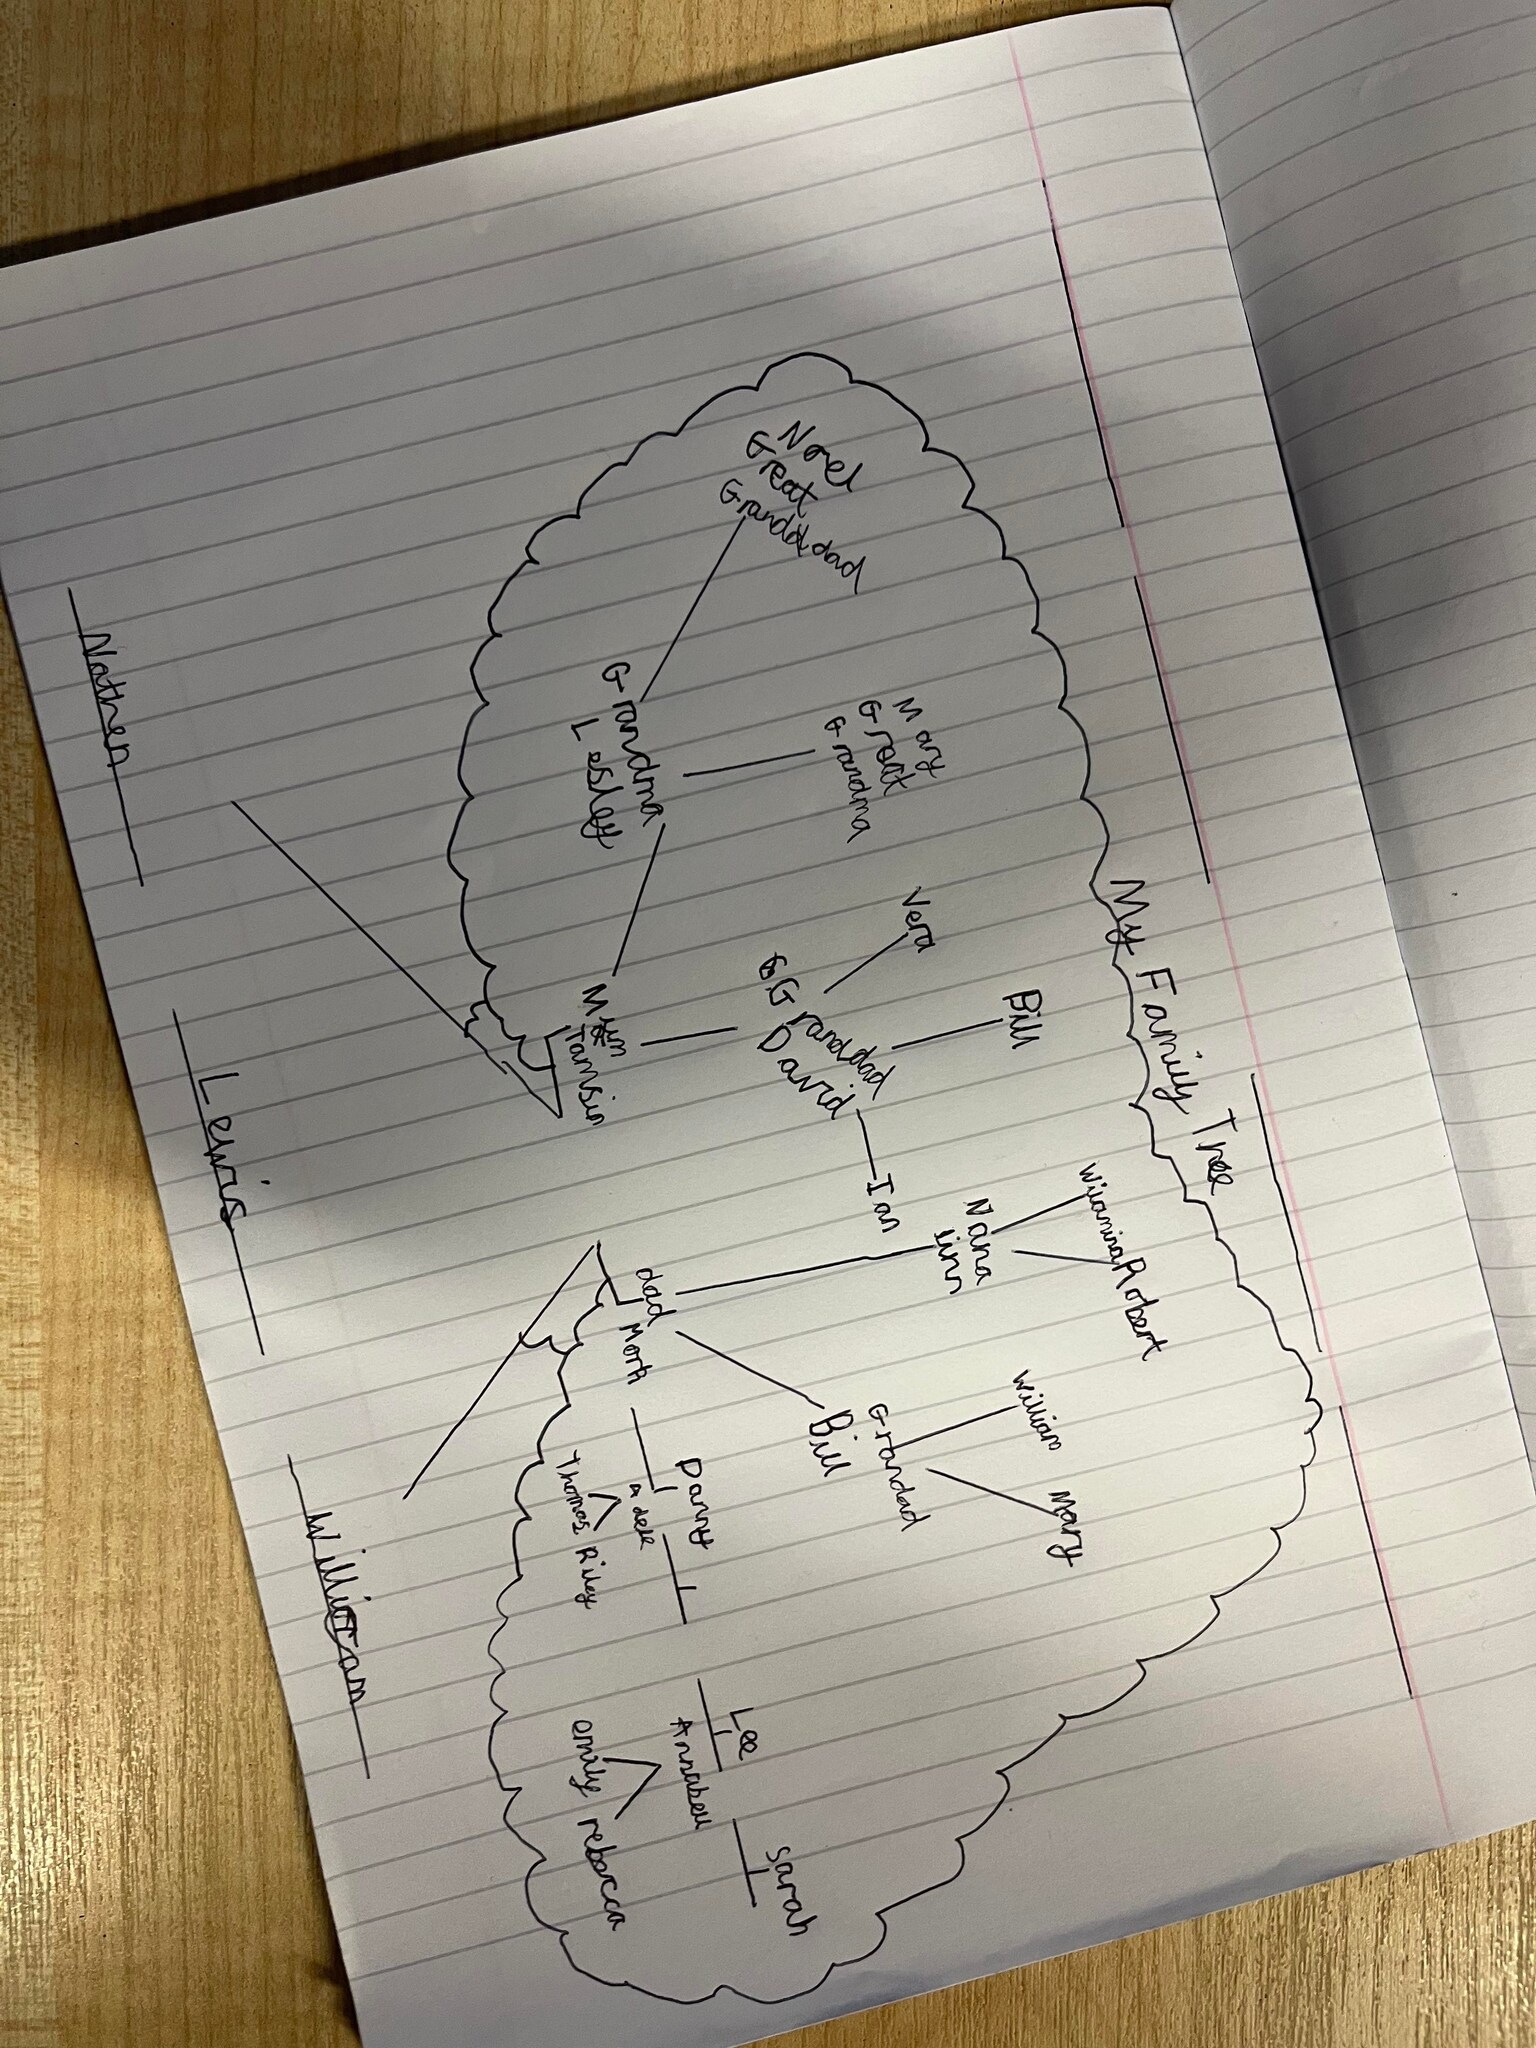 My Family Tree
Norel
Great
Granddad
Mary
Great
Grandma
Vera
Bill
Wilamina
Robert
William
Mary
Grandma
Lesley
Granddad
David
Ian
Nana
linn
Grandad
Bill
Mum
Tamsin
dad
Mark
Danny
adele
Thomas Riley
Lee
Annabell
emily rebecca
Sarah
Nathen
Lewis
William